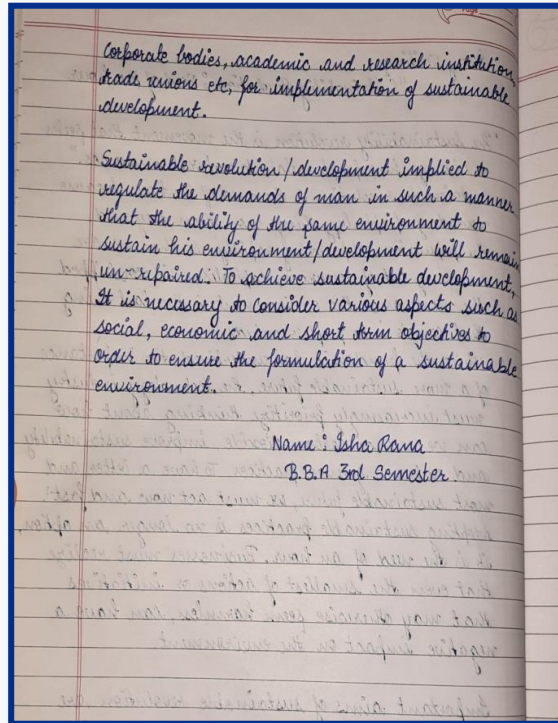 Corporate bodies, academic and research institution,
trade unions etc, for implementation of sustainable
development.
Sustainable revolution/development implied to
regulate the demands of man in such a manner
that the ability of the same environment to
sustain his environment/development will remain
un-repaired. To achieve sustainable development,
It is necessary to consider various aspects such as
social, economic and short term objectives to
order to ensure the formulation of a sustainable
environment.
Name : Isha Rana
B.B.A 3rd Semester